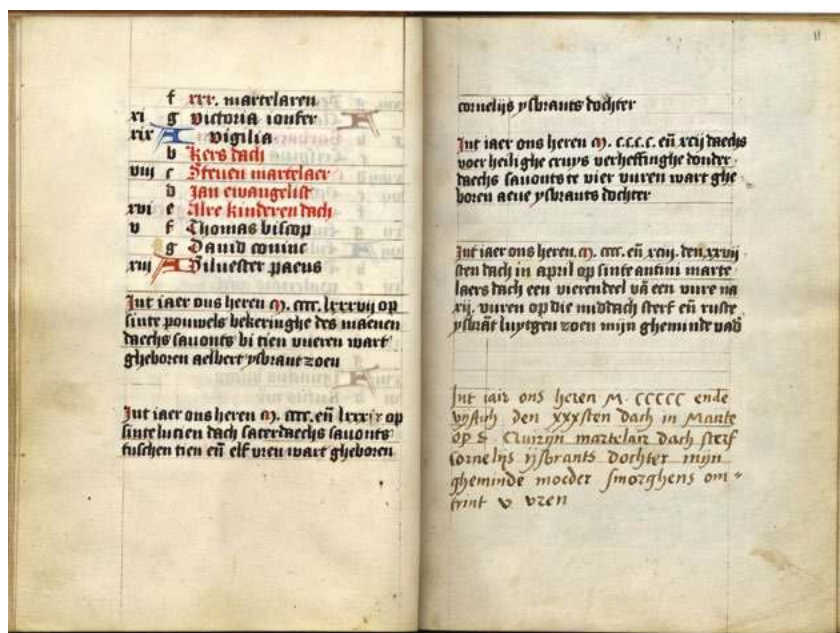 f xxx. martelaren
xi g victoria ionfer
xix A vigilia
b kers dach
viii c Steuen martelaer
d Jan ewangelist
xvi e Alre kinderen dach
v f Thomas biscop
g Dauid coninc
xiii A Siluester paeus
Int iaer ons heren M. cccc. lxxxvij op
sinte pouwels bekeringhe des maenen
daechs sauonts bi tien vueren wart
gheboren aelbert ysbrant zoen
Int iaer ons heren M. cccc. eñ lxxxix op
sinte lucien dach saterdaechs sauonts
tuschen tien eñ elf vren wart gheboren
11
cornelijs ysbrants dochter
Int iaer ons heren M. c.c.c.c. eñ xcij daechs
voer heilighe cruys verheffinghe donder
daechs sauonts te vier vuren wart ghe
boren aene ysbrants dochter
Int iaer ons heren. M. cccc. eñ xciii. den xxvij
sten dach in april op sinte antini marte
laers dach een vierendeel vā een vure na
xij. vuren op die middach sterf eñ ruste
ysbrāt luytgen zoen mijn gheminde vad
Int iair ons heren M. CCCCC ende
vijftich den xxxsten dach in Marte
op S. Cruirijn martelair dach sterf
Cornelijs ijsbrants dochter mijn
gheminde moeder smorghens om=
trint v vren